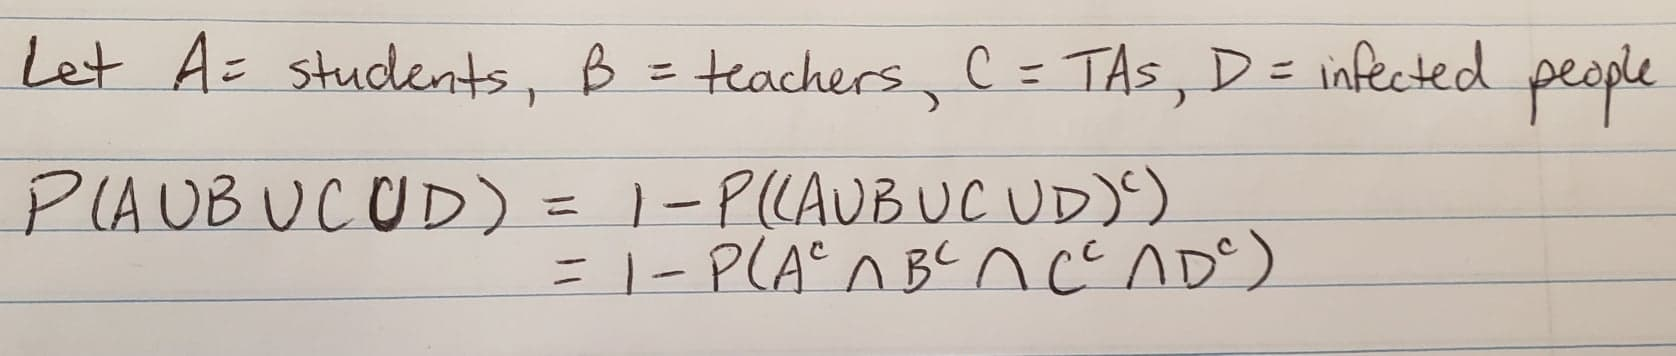 Let A = students, B = teachers, C = TAs, D = infected people
P(A∪B∪C∪D) = 1-P((A∪B∪C∪D)ᶜ)
= 1-P(Aᶜ∩Bᶜ∩Cᶜ∩Dᶜ)